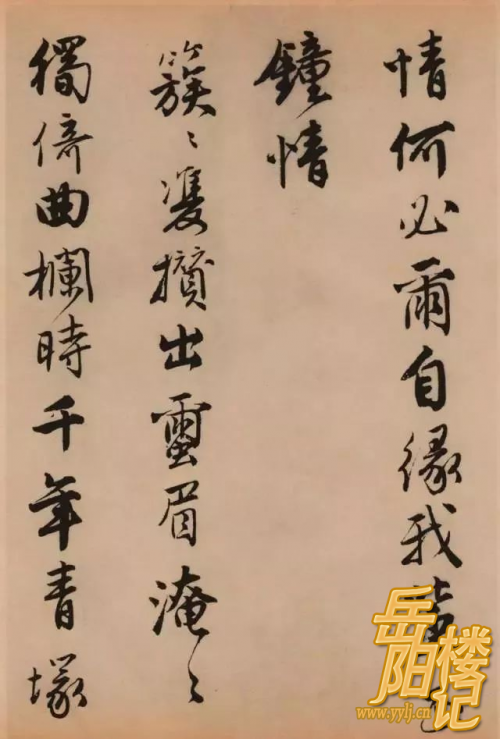 情何必爾自緣我輩
鐘情
簇〻雙攢出繭眉淹〻
獨倚曲欄時千年青塚
岳阳楼记
www.yylj.cn